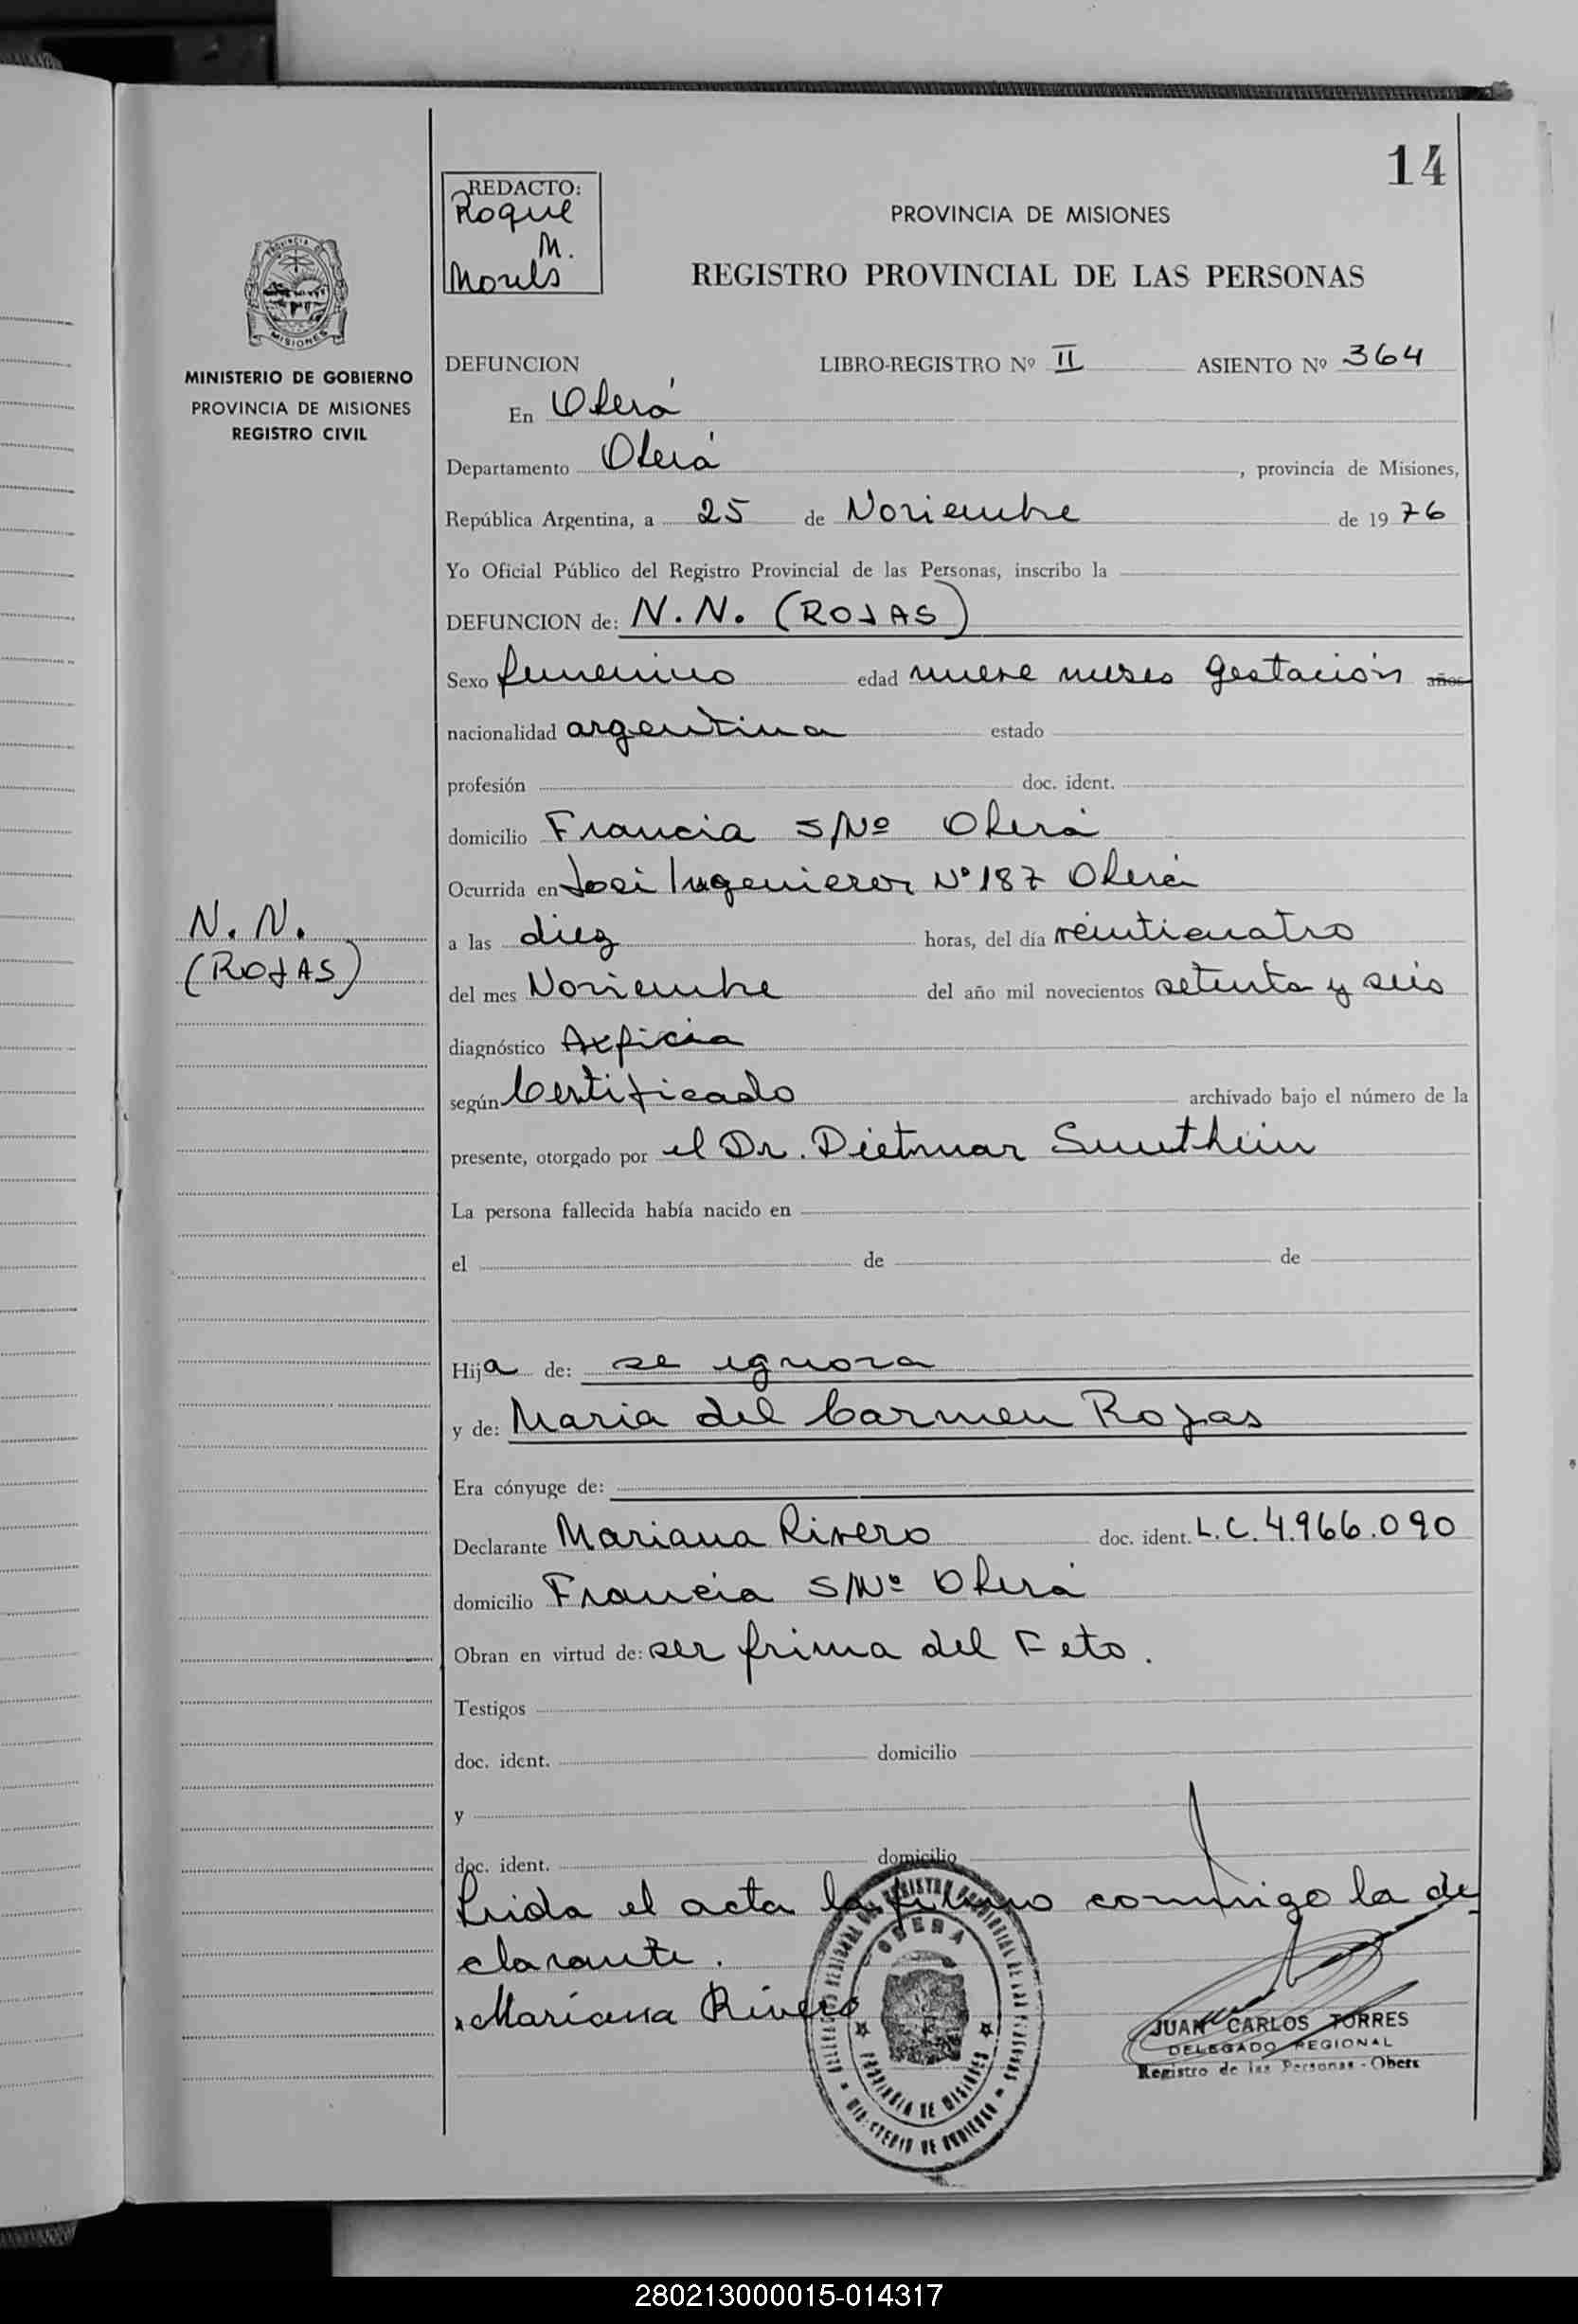 14
REDACTO:
Roque
M.
Morels
PROVINCIA DE MISIONES
REGISTRO PROVINCIAL DE LAS PERSONAS
MINISTERIO DE GOBIERNO
PROVINCIA DE MISIONES
REGISTRO CIVIL
DEFUNCION LIBRO-REGISTRO Nº II ASIENTO Nº 364
En Oberá
Departamento Oberá, provincia de Misiones,
República Argentina, a 25 de Noviembre de 1976
Yo Oficial Público del Registro Provincial de las Personas, inscribo la
DEFUNCION de: N.N. (ROJAS)
Sexo femenino edad nueve meses gestación años
nacionalidad argentina estado
profesión doc. ident.
domicilio Francia S/Nº Oberá
Ocurrida en José Ingenieros Nº 187 Oberá
N. N.
(ROJAS)
a las diez horas, del día veinticuatro
del mes Noviembre del año mil novecientos setenta y seis
diagnóstico Axficia
según Certificado archivado bajo el número de la
presente, otorgado por el Dr. Dietmar
La persona fallecida había nacido en
el de de
Hija de: se ignora
y de: Maria del Carmen Rojas
Era cónyuge de:
Declarante Mariana Rivero doc. ident. L.C. 4.966.090
domicilio Francia S/Nº Oberá
Obran en virtud de: ser prima del Feto.
Testigos
doc. ident. domicilio
y
doc. ident. domicilio
Leida el acta la firmo conmigo la de-
clarante.
Mariana Rivero
OBERA
PROVINCIA DE MISIONES
JUAN CARLOS TORRES
DELEGADO REGIONAL
Registro de las Personas - Obera
280213000015-014317